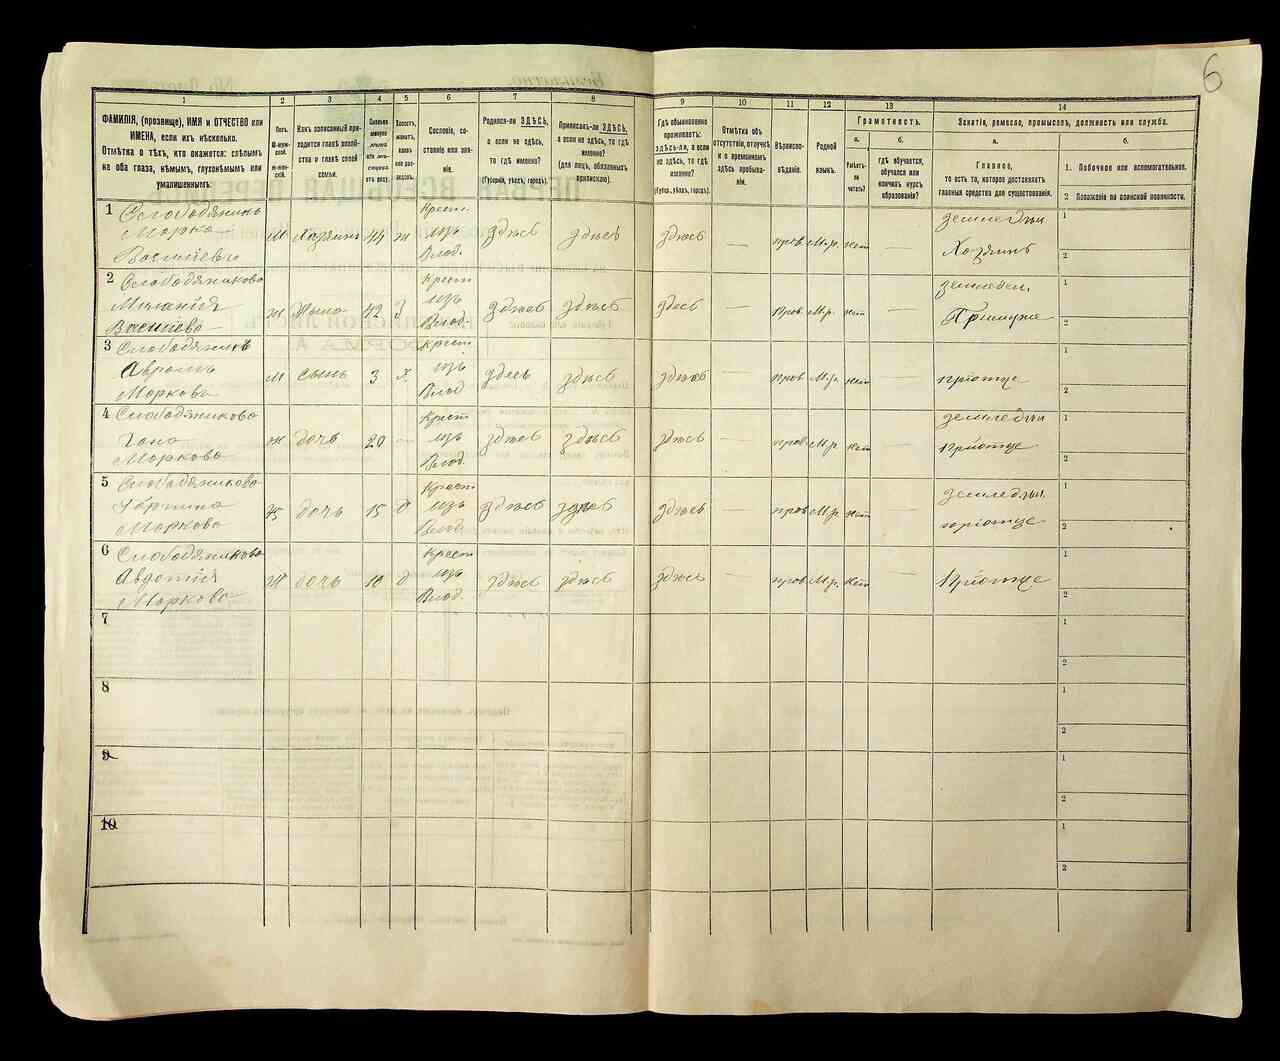 6
1 2 3 4 5 6 7 8 9 10 11 12 13 14
ФАМИЛІЯ, (прозвище), ИМЯ и ОТЧЕСТВО или
ИМЕНА, если ихъ нѣсколько.
Отмѣтка о тѣхъ, кто окажется: слѣпымъ
на оба глаза, нѣмымъ, глухонѣмымъ или
умалишеннымъ.
Полъ.
М-мужской.
Ж-женскій.
Какъ записанный приходится
главѣ хозяйства
и главѣ своей
семьи.
Сколько
минуло
лѣтъ
или мѣсяцевъ
отъ роду.
Холостъ,
женатъ,
вдовъ
или разведенъ.
Сословіе, состояніе
или званіе.
Родился-ли ЗДѢСЬ,
а если не здѣсь,
то гдѣ именно?
(Губернія, уѣздъ, городъ).
Приписанъ-ли ЗДѢСЬ,
а если не здѣсь, то гдѣ
именно?
(для лицъ, обязанныхъ
припискою).
Гдѣ обыкновенно
проживаетъ:
здѣсь-ли, а если
не здѣсь, то гдѣ
именно?
(Губерн., уѣздъ, городъ).
Отмѣтка объ
отсутствіи, отлучкѣ
и о временномъ
здѣсь пребываніи.
Вѣроисповѣданіе.
Родной
языкъ.
Грамотность.
а.
Умѣетъ-ли
читать?
б.
гдѣ обучается,
обучался или
кончилъ курсъ
образованія?
Занятія, ремесло, промыселъ, должность или служба.
а.
Главное,
то есть то, которое доставляетъ
главныя средства для существованія.
б.
1. Побочное или вспомогательное.
2 Положеніе по воинской повинности.
1 Слободяникъ Крест. земледѣл 1
Марко М Хазяинъ 44 ж изъ здѣсь здѣсь здѣсь — прав. М.р. нет —
Васильевъ Влад. Хозяинъ 2
2 Слободяникова Крест земледел. 1
Ж 42 З изъ здѣсь здѣсь здесь — прав. М.р. нет —
Васильева Влад. Примуже 2
3 Слободяникъ Крест 1
Авраамъ М сынъ 3 х изъ здесь здѣсь здѣсь — прав М.р. нет — приотце
Маркова Влад 2
4 Слободяникова Крест земледѣл 1
Ж дочь 20 — изъ здѣсь здѣсь здѣсь — прав. М.р. нет — приотце
Маркова Влад. 2
5 Слободяникова Крест земледѣл. 1
Ж дочь 15 д изъ здѣсь здѣсь здѣсь — прав М.р. нет — приотце
Маркова Влад. 2
6 Слободяникова Крест 1
Авдотія Ж дочь 10 д изъ здѣсь здѣсь здѣсь — прав М.р. нет — приотце
Маркова Влад. 2
7 1
2
8 1
2
9 1
2
10 1
2